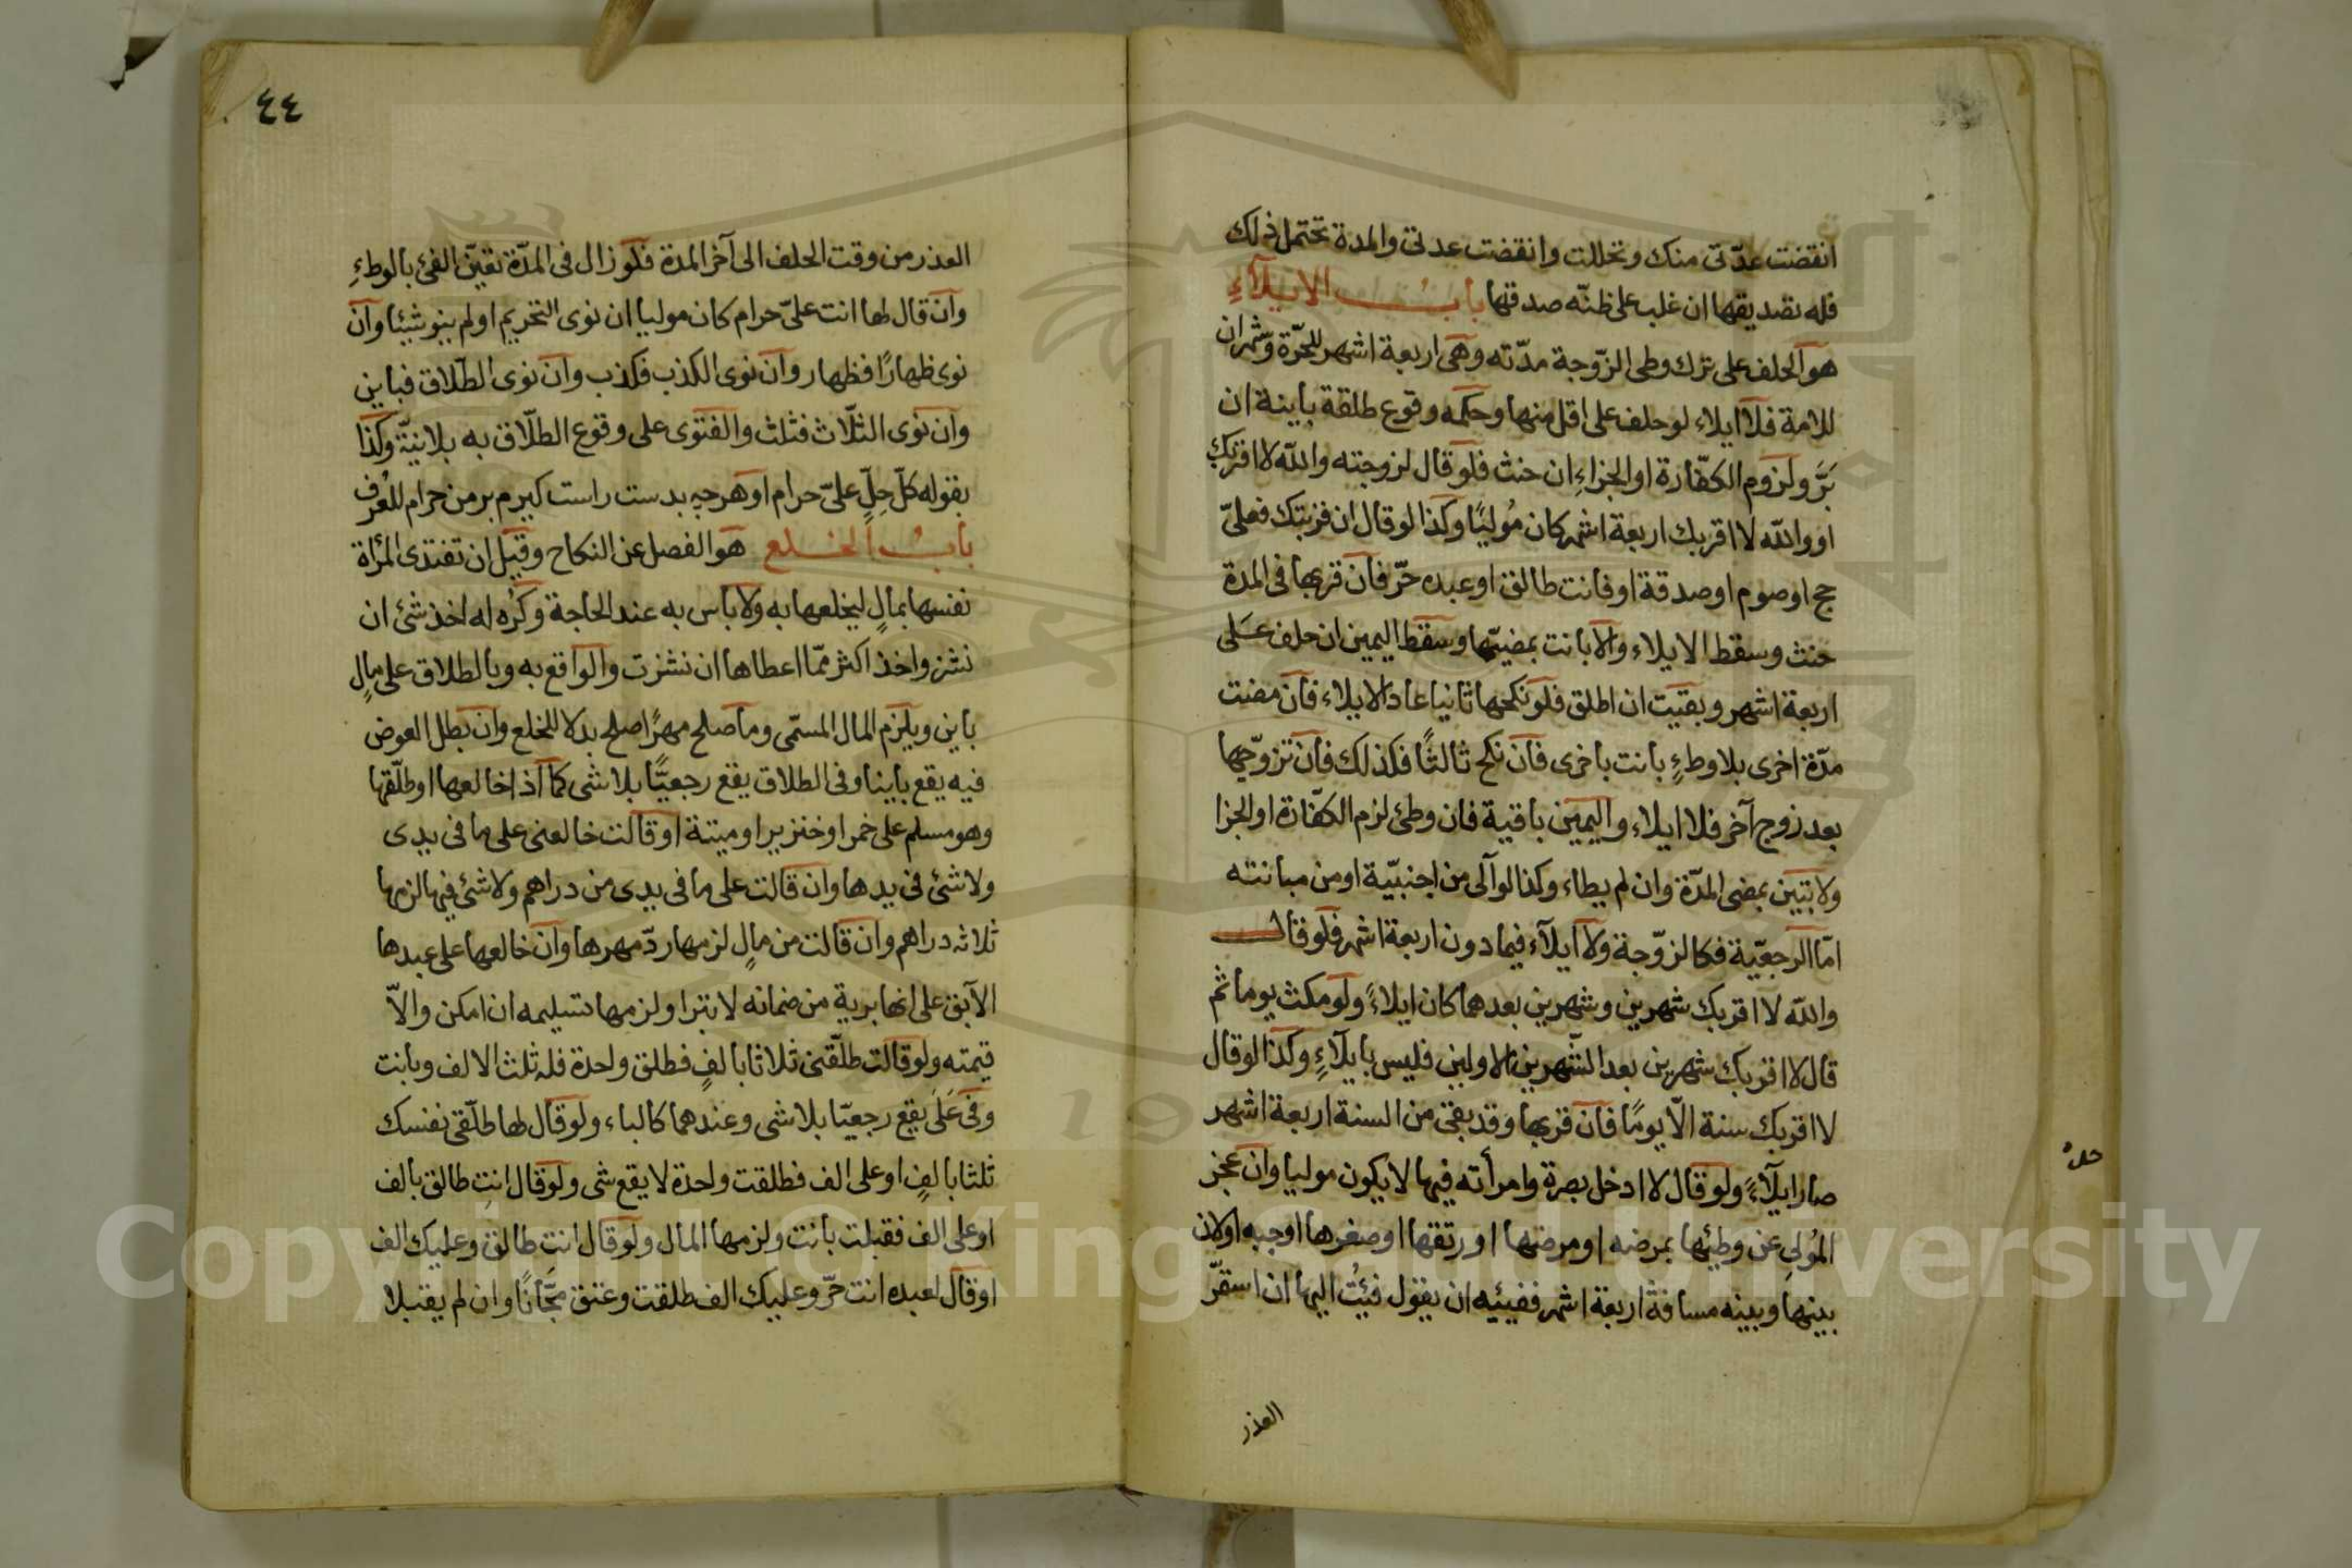 انقضت عدّتى منك وتحللت وانقضت عدتى والمدة تحتمل ذلك
فله تصديقها ان غلب على ظنّه صدقها باب الايلآءِ
هو الحلف على ترك وطى الزّوجة مدّته وهى اربعة اشهر للحرّة وشهران
للامة فلا ايلاء لو حلف على اقل منها وحكمه وقوع طلقة باينة ان
بَرَّ ولزوم الكفّارة او الجزاءِ ان حنث فلو قال لزوجته والله لا اقربك
او والله لا اقربك اربعة اشهر كان مُوليًا وكذا لو قال ان قربتك فعلىّ
حج او صوم او صدقة او فانت طالق او عبده حرّ فان قربها فى المدة
حنث وسقط الايلاء والا بانت بمضيّها وسقط اليمين ان حلف عَلى
اربعة اشهر وبقيت ان اطلق فلو نكحها ثانيا عاد الايلاء فان مضت
مدّة اخرى بلا وطءٍ بانت باخرى فان نكح ثالثًا فكذلك فان تزوّجها
بعد زوج آخر فلا ايلاء واليمين باقية فان وطئ لزم الكفّارة او الجزا
ولا تبين بمضى المدّة وان لم يطاء وكذا لو آلى من اجنبيّة او من مبانته
امّا الرجعيّة فكالزوّجة ولا ايلآء فيما دون اربعة اشهر فلو قال
والله لا اقربك شهرين وشهرين بعدهما كان ايلاءً ولو مكث يوما ثم
قال لا اقربك شهرين بعد الشّهرين الاولين فليس بايلآءٍ وكذا لو قال
لا اقربك سنة الاّ يومًا فان قربها وقد بقى من السنة اربعة اشهر
صار ايلآءً ولو قال لا ادخل بصرة وامرأته فيها لا يكون موليا وان عجز
المُولى عن وطيُها بمرضه او مرضها او رتقها او صغرها او جبه اولان
بينها وبينه مسافة اربعة اشهر ففيئيه ان يقول فئتُ اليها ان استقرّ
العذر
٤٤
العذر من وقت الحلف الى آخر المدة فلو زال فى المدّة تعيّن الفئ بالوطءِ
وان قال لها انت علىّ حرام كان موليا ان نوى التحريم او لم ينو شيئا وان
نوى ظهارًا فظهار وان نوى الكذب فكذب وان نوى الطّلاق فباين
وان نوى الثلّاث فثلث والفتوى على وقوع الطلّاق به بلا نيّة وكذا
بقوله كلّ حِلٍّ علىّ حرام او هرجه بدست راست كيرم بر من حرام للعُرف
بابُ الخلع هو الفصل عن النكاح وقيل ان تفتدى المرأة
نفسها بمالٍ ليخلعها به ولا باس به عند الحاجة وكُره له اخذ شئ ان
نشز واخذ اكثر ممّا اعطاها ان نشزت والواقع به وبالطلاق على مالٍ
باين ويلزم المال المسمّى وما صلح مهرًا صلح بدلا للخلع وان بطل العوض
فيه يقع باينا وفى الطلاق يقع رجعيًّا بلا شى كما اذا خالعها او طلّقها
وهو مسلم على خمر او خنزير او ميتة او قالت خالعنى على ما فى يدى
ولا شئ فى يدها وان قالت على ما فى يدى من دراهم ولا شئ فيها لزمها
ثلاثه دراهم وان قالت من مالٍ لزمها ردّ مهرها وان خالعها على عبدها
الآبق على انها برية من ضمانه لا تبرا ولزمها تسليمه ان امكن والاّ
قيمته ولو قالت طلّقنى ثلاثا بالفٍ فطلق واحدة فله ثلث الالف وبانت
وفى عَلَى يقع رجعيّا بلا شى وعندهما كالباء ولو قال لها طلّقى نفسك
ثلثا بالفٍ او على الف فطلقت واحدة لا يقع شى ولو قال انتِ طالق بالف
او على الف فقبلت بانت ولزمها المال ولو قال انت طالق وعليك الف
او قال لعبده انت حرّ وعليك الف طلقت وعتق مجّانًا وان لم يقبلا
Copyright © King Saud University